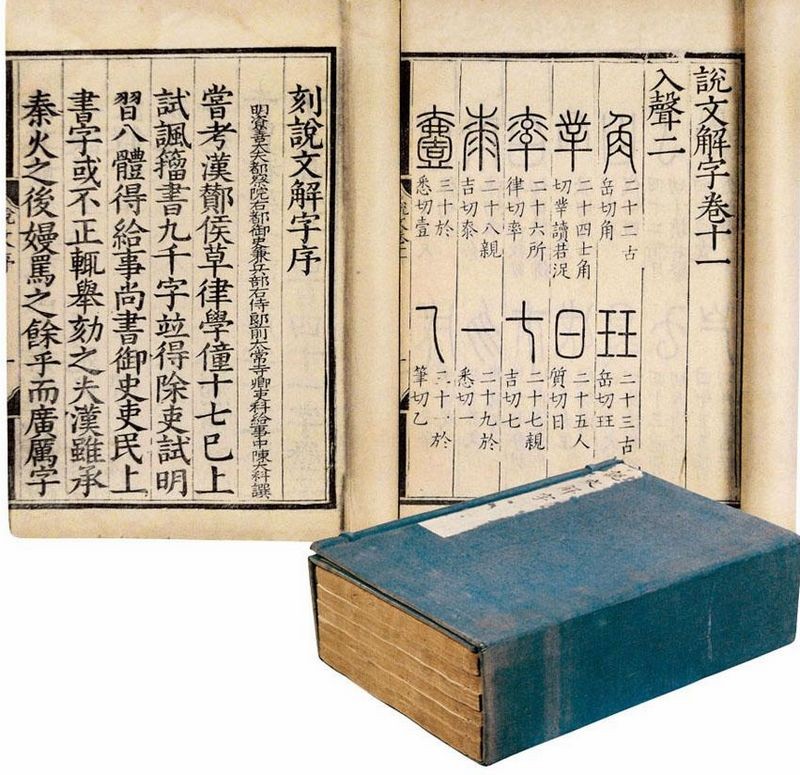 說文解字卷十一
入聲二
角 二十二古岳切角 玨 二十三古岳切玨
丵 二十四士角切丵讀若浞 日 二十五人質切日
率 二十六所律切率 七 二十七親吉切七
桼 二十八親吉切桼 一 二十九於悉切一
壹 三十於悉切壹 乙 三十一於筆切乙
刻說文解字序
明資善大夫都察院右都御史兼兵部右侍郎前太常寺卿吏科給事中陳大科譔
嘗考漢酇侯草律學僮十七巳上
試諷籀書九千字竝得除吏試明
習八體得給事尚書御史吏民上
書字或不正輒舉劾之夫漢雖承
秦火之後嫚罵之餘乎而廣厲字
說文序